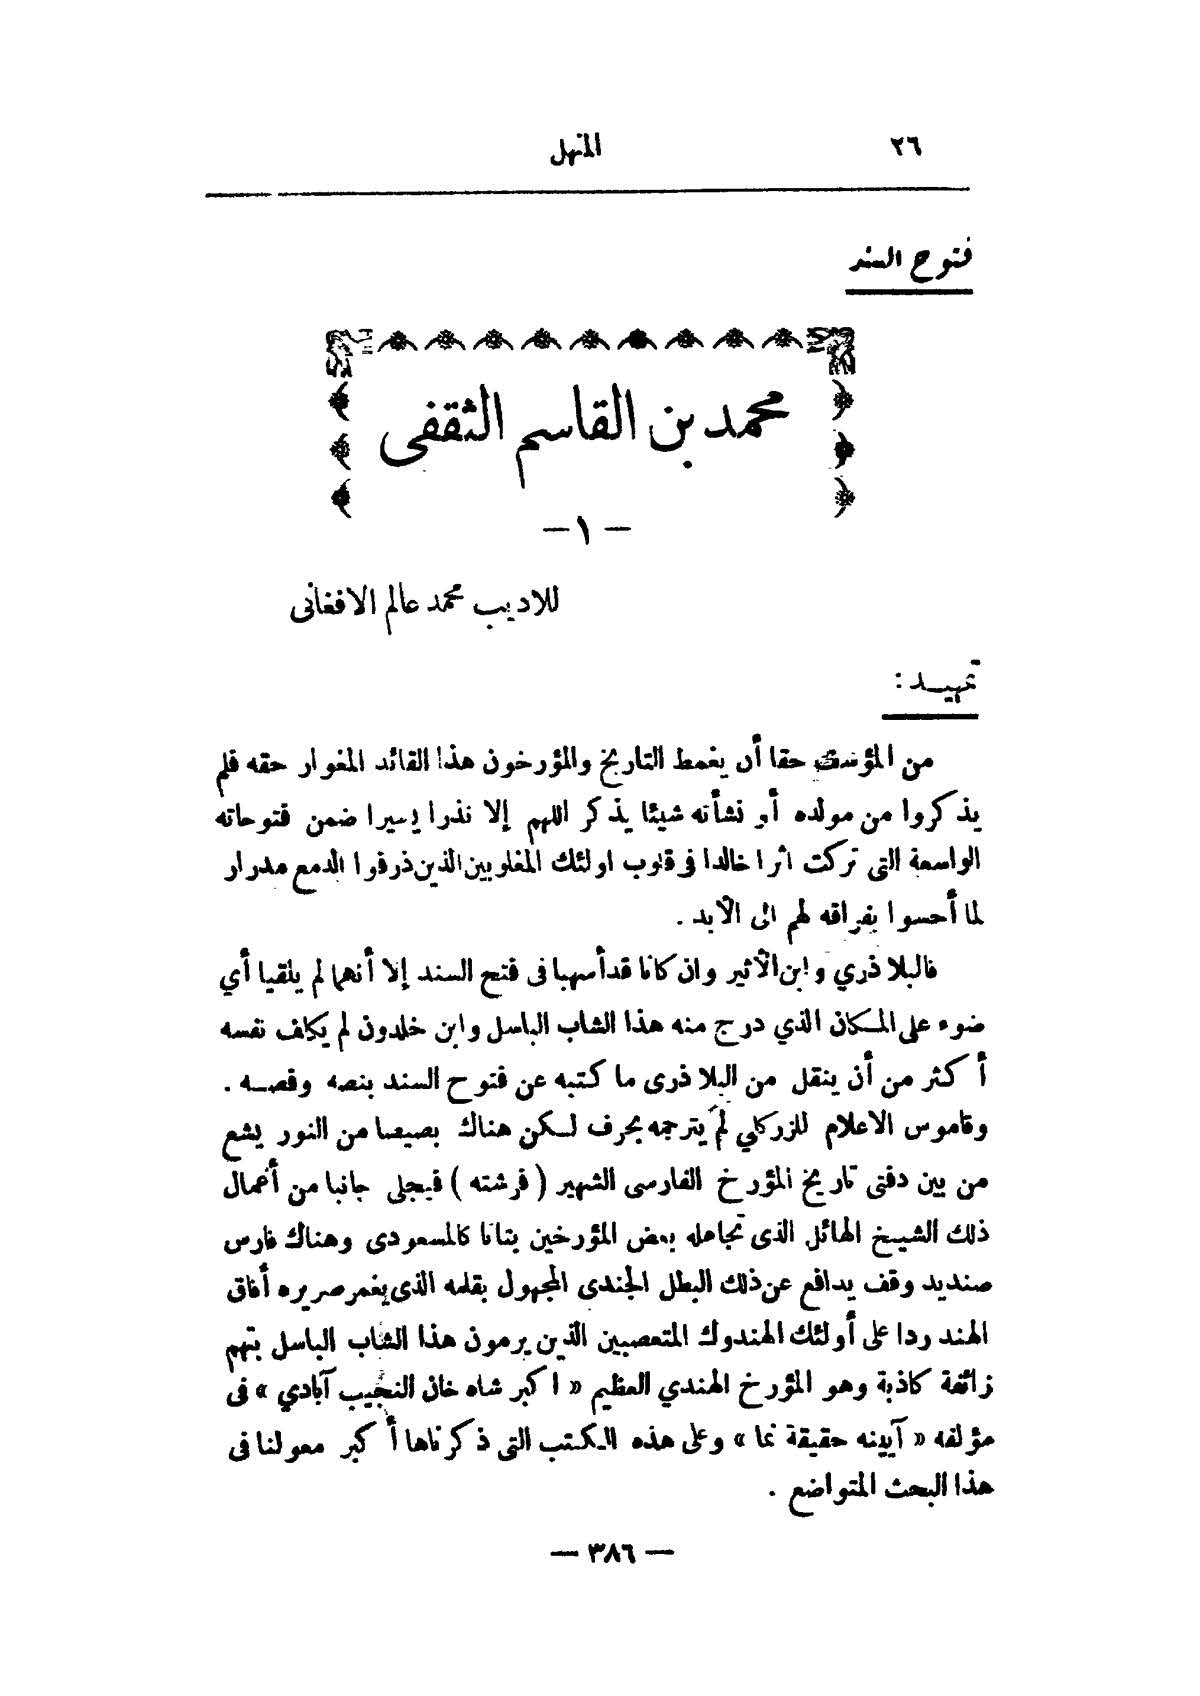 ٢٦
المنهل
فتوح السند
محمد بن القاسم الثقفى
— ١ —
للاديب محمد عالم الافغانى
تمهيد :
من المؤسف حقا أن يغمط التاريخ والمؤرخون هذا القائد المغوار حقه فلم
يذكروا من مولده أو نشأته شيئا يذكر اللهم إلا نذرا يسيرا ضمن فتوحاته
الواسعة التى تركت اثرا خالدا فى قلوب اولئك المغلوبين الذين ذرفوا الدمع مدرار
لما أحسوا بفراقه لهم الى الأبد .
فالبلاذري وابن الأثير وان كانا قد أسهبا فى فتح السند إلا أنهما لم يلقيا أي
ضوء على المكان الذي درج منه هذا الشاب الباسل وابن خلدون لم يكلف نفسه
أكثر من أن ينقل من البلاذرى ما كتبه عن فتوح السند بنصه وفصه .
وقاموس الاعلام للزركلي لم يترجمه بحرف لكن هناك بصيصا من النور يشع
من بين دفتى تاريخ المؤرخ الفارسى الشهير ( فرشته ) فيجلى جانبا من أعمال
ذلك الشيخ الهائل الذى تجاهله بعض المؤرخين بتاتا كالمسعودى وهناك فارس
صنديد وقف يدافع عن ذلك البطل الجندى المجهول بقلمه الذى يغمر صريره أفاق
الهند ردا على أولئك الهندوك المتعصبين الذين يرمون هذا الشاب الباسل بتهم
زائفة كاذبة وهو المؤرخ الهندي العظيم « اكبر شاه خان النجيب آبادي » فى
مؤلفه « آيينه حقيقة نما » وعلى هذه الكتب التى ذكرناها أكبر معولنا فى
هذا البحث المتواضع .
— ٣٨٦ —